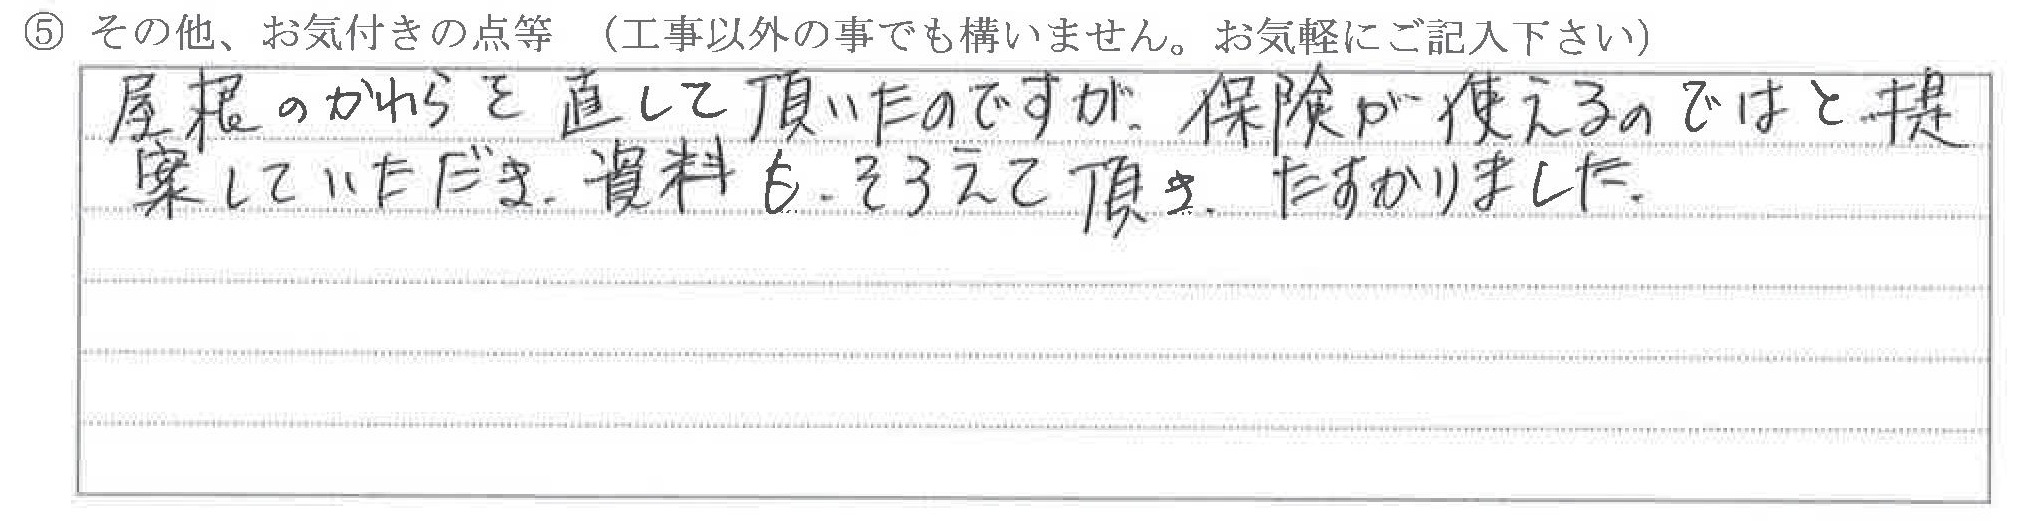 ⑤ その他、お気付きの点等 （工事以外の事でも構いません。お気軽にご記入下さい）
屋根のかわらを直して頂いたのですが、保険が使えるのではと提
案していただき、資料も、そろえて頂き、たすかりました。